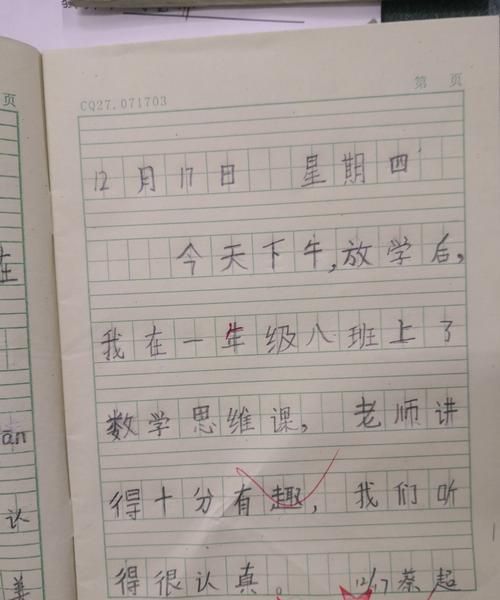 第 页
CQ27.071703
12月17日 星期四
今天下午,放学后,
我在一年级八班上了
数学思维课, 老师讲
得十分有趣, 我们听
得很认真。 12/17 蔡超
页
在
ān
认
美